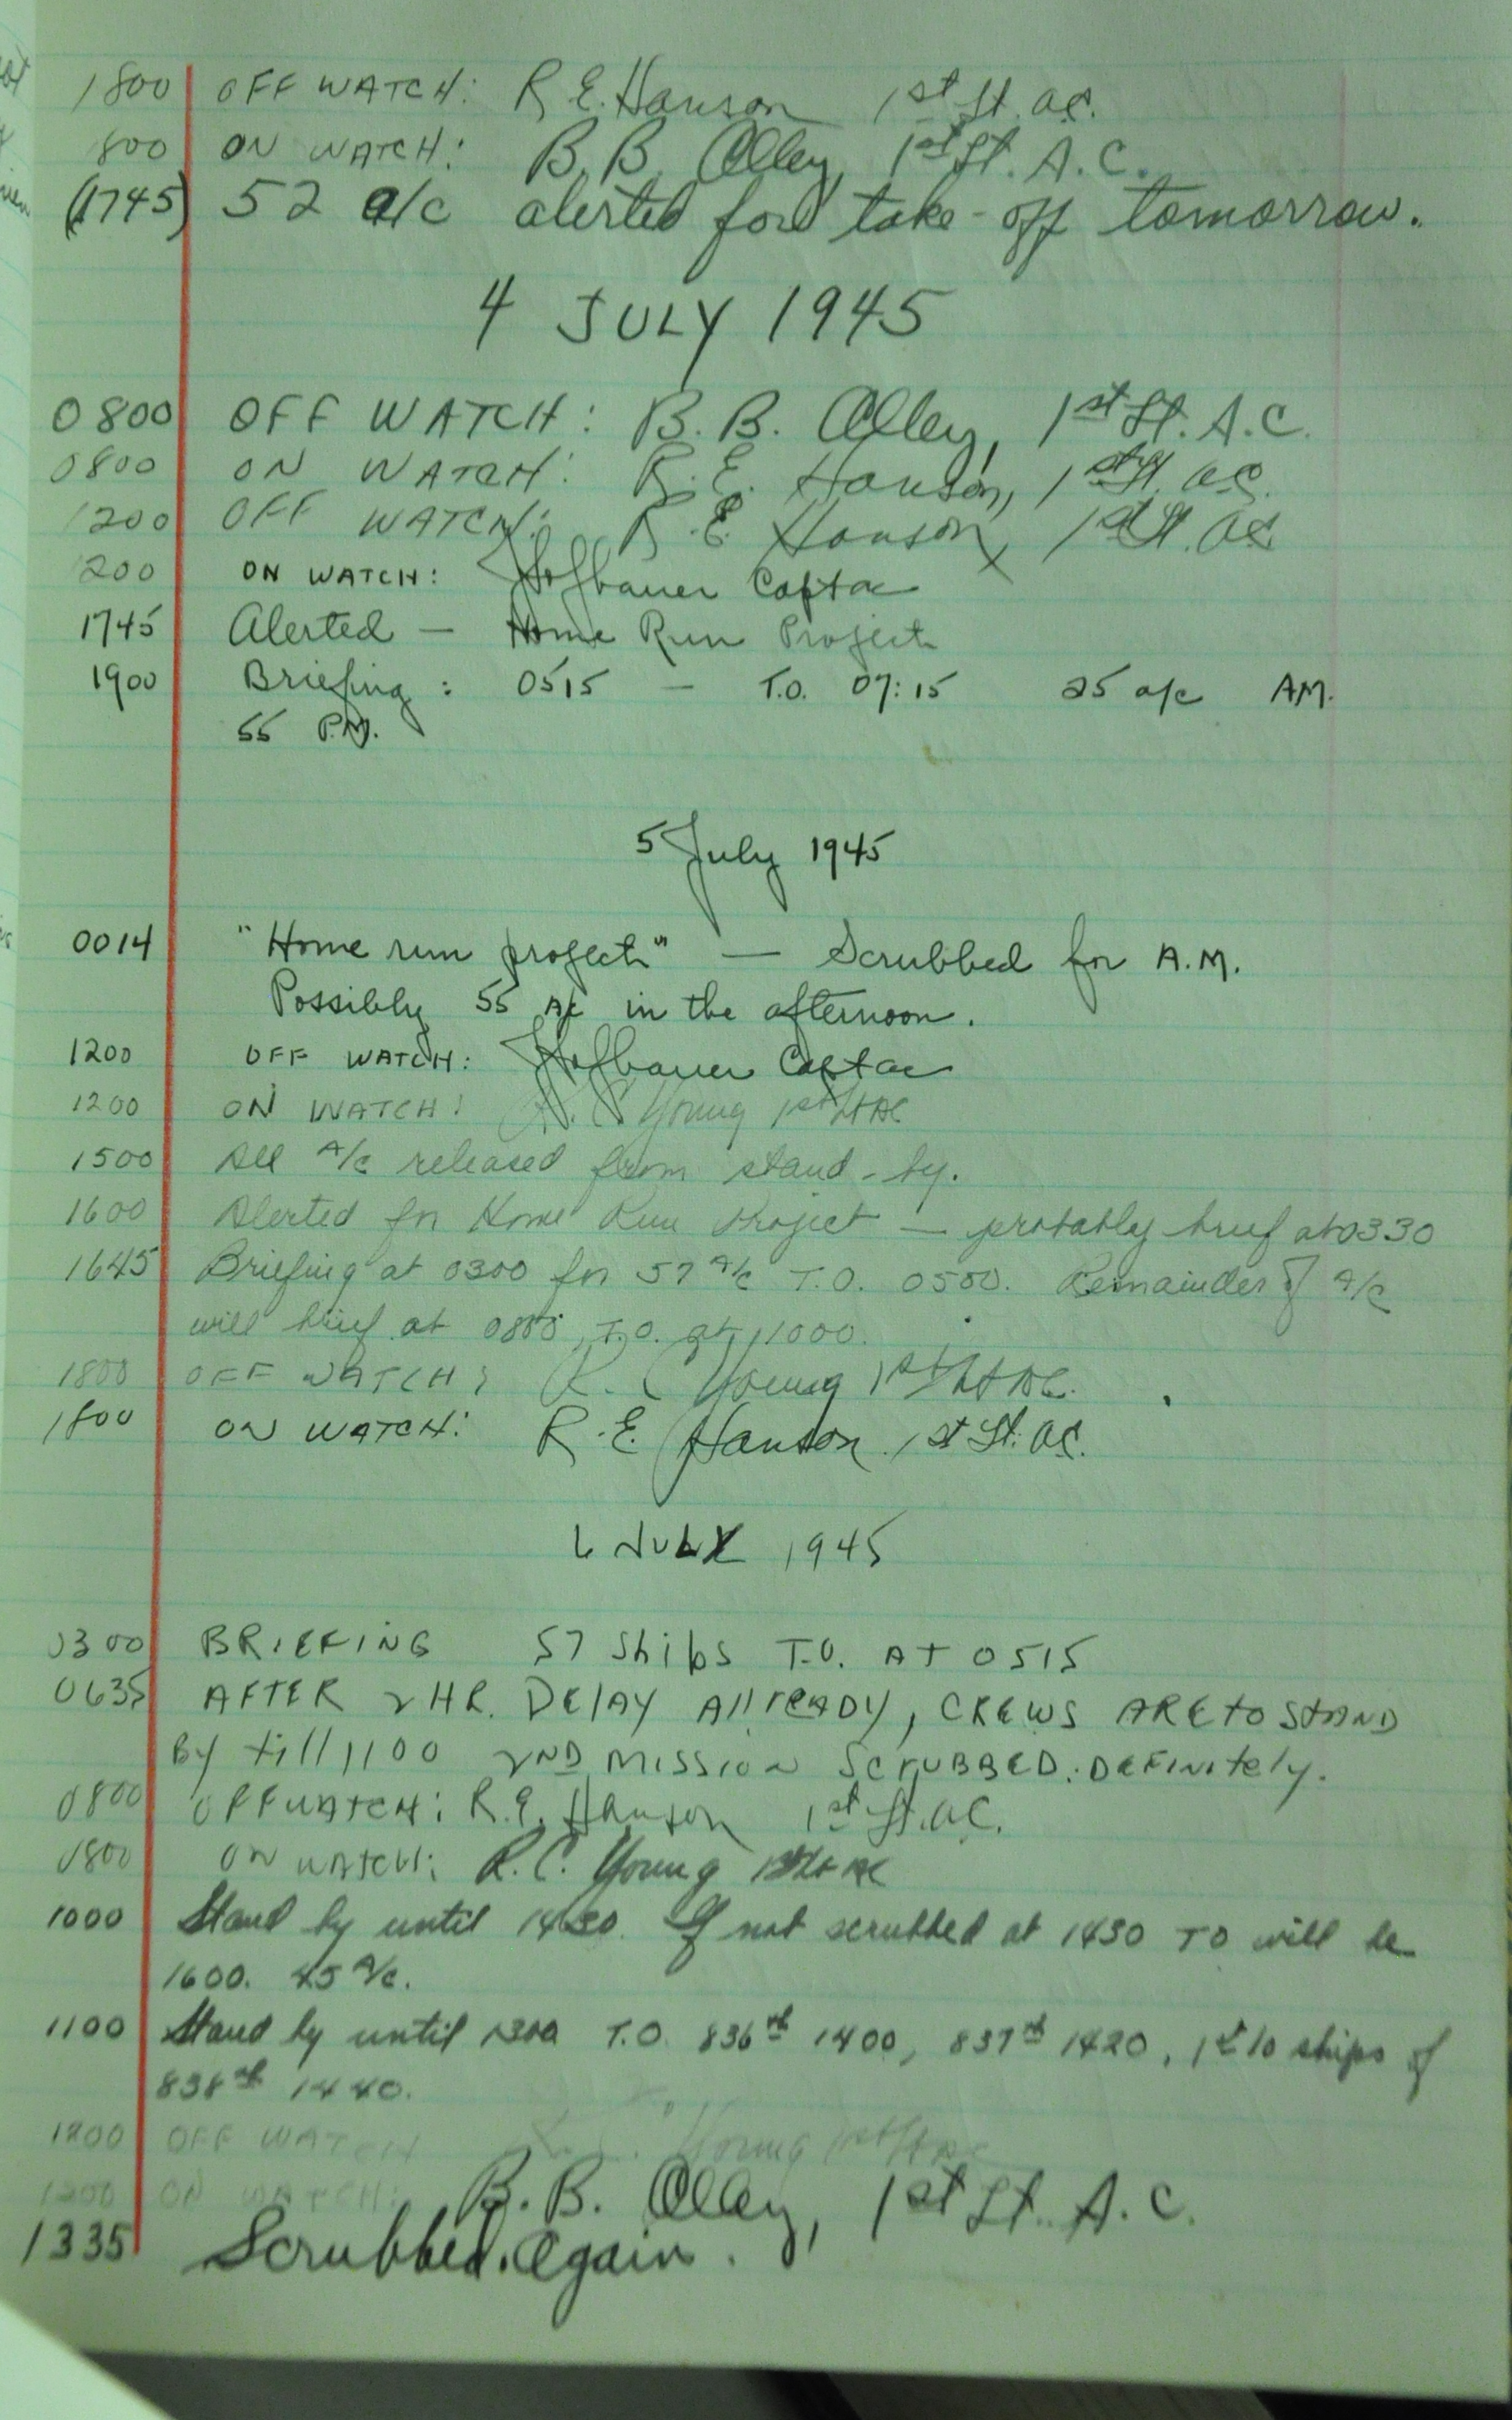 1800 OFF WATCH: R.E. Hanson 1st Lt. AC.
1800 ON WATCH: B.B. Olley, 1st Lt. A.C.
(1745) 52 a/c alerted for take-off tomorrow.
4 JULY 1945
0800 OFF WATCH: B.B. Olley, 1st Lt. A.C.
0800 ON WATCH: R.E. Hanson, 1st Lt. AC.
1200 OFF WATCH: R.E. Hanson, 1st Lt. AC
1200 ON WATCH: Hofbauer Capt ac
1745 Alerted — Home Run Project
1900 Briefing: 0515 — T.O. 07:15 25 a/c AM.
55 P.M.
5 July 1945
0014 "Home run project" — Scrubbed for A.M.
Possibly 55 a/c in the afternoon.
1200 OFF WATCH: Hofbauer Capt ac
1200 ON WATCH: R.C. Young 1st Lt AC
1500 All A/c released from stand-by.
1600 Alerted for Home Run Project — probably brief at 0330
1645 Briefing at 0300 for 57 A/c T.O. 0500. Remainder of A/c
will brief at 0800, T.O. at 1000.
1800 OFF WATCH: R.C. Young 1st Lt AC.
1800 ON WATCH: R.E. Hanson 1st Lt. AC.
6 JULY 1945
0300 BRIEFING 57 Ships T.O. AT 0515
0635 AFTER 2 HR. DELAY AllreADY, CREWS ARE to STAND
By till 1100 2ND MISSION SCrUBBED. DEFINitely.
0800 OFF WATCH: R.E. Hanson 1st Lt. AC.
0800 ON WATCH: R.C. Young 1st Lt AC
1000 Stand by until 1430. If not scrubbed at 1430 TO will be
1600. 45 A/c.
1100 Stand by until 1300 T.O. 836th 1400, 837th 1420, 1st 10 ships of
838th 1440.
1200 OFF WATCH R.C. Young 1st Lt AC
1200 ON WATCH: B.B. Olley, 1st Lt. A.C.
1335 Scrubbed. Again.